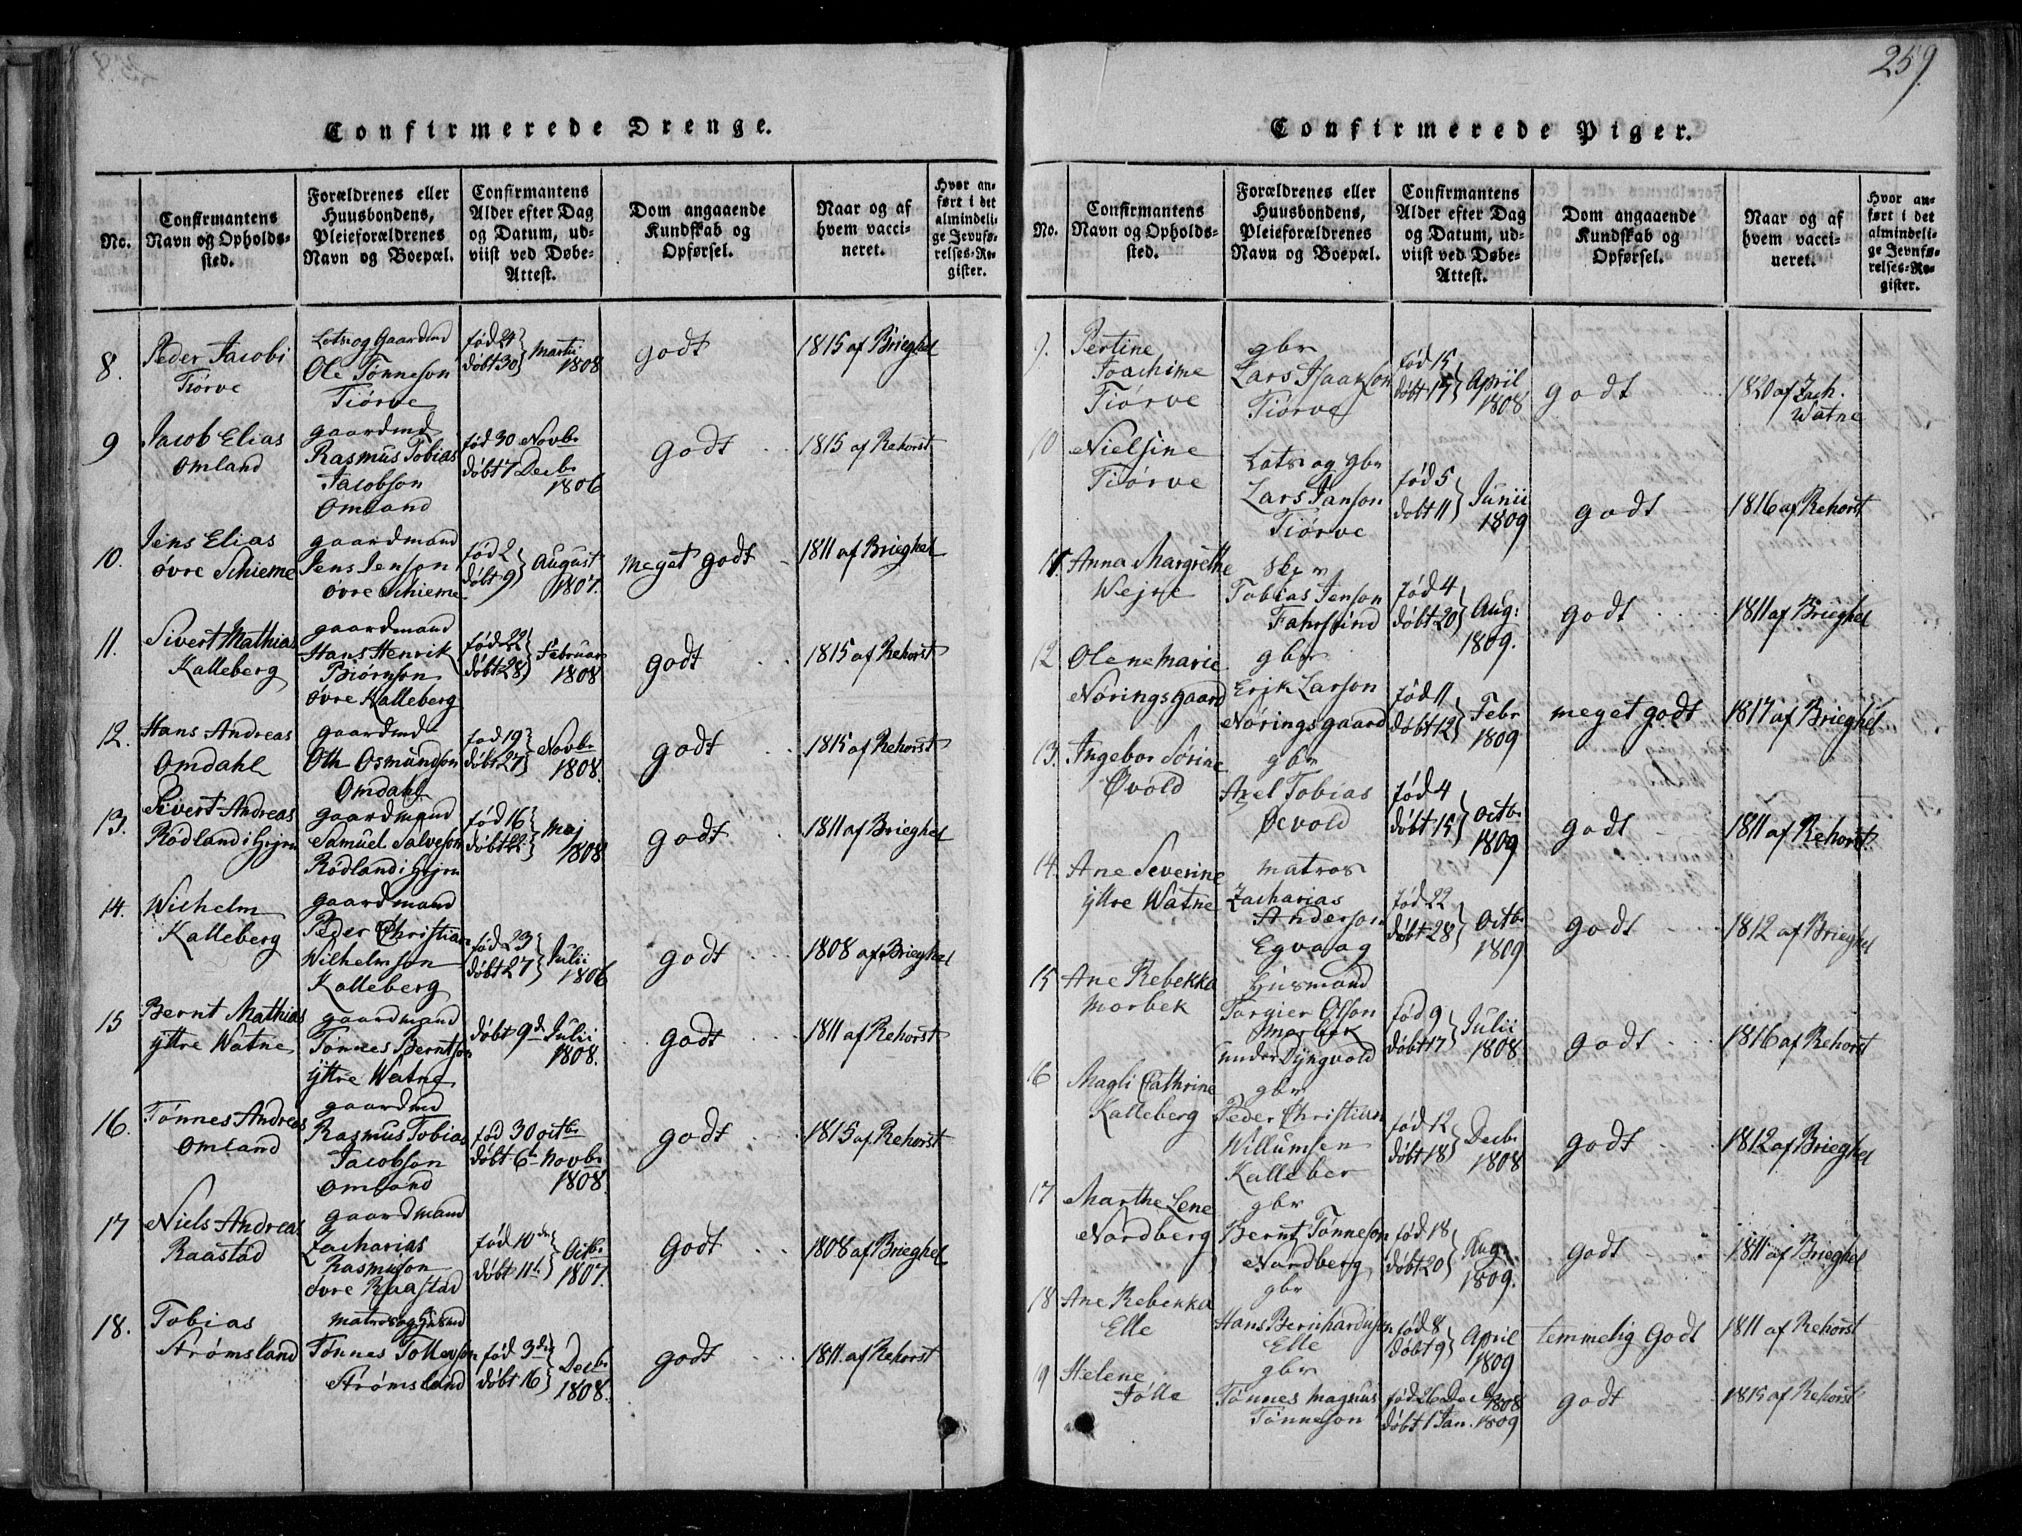 259.
Confirmerede Drenge.
No.
Confirmantens Navn og Opholds-sted.
Forældrenes eller Huusbondens, Pleieforældrenes Navn og Boepæl.
Confirmantens Alder efter Dag og Datum, ud-viist ved Døbe-Attest.
Dom angaaende Kundskab og Opførsel.
Naar og af hvem vacci-neret.
Hvor an-ført i det almindeli-ge Jevnfø-relses-Re-gister.
8. Peder Jacobi Tiørve
Lots og Gaardmd Ole Tønneson Tiørve
fød 24 døbt 30 Martii 1808
godt
1815 af Brieghel
9 Jacob Elias Omland
gaardmd Rasmus Tobias Jacobson Omland
fød 30 Novbr døbt 7 Decbr 1806
godt
1815 af Rehorst
10. Jens Elias øvre Schieme
gaardmand Jens Jenson øvre Schieme
fød 2 døbt 9 August 1807.
meget godt
1811 af Brieghel
11. Sivert Mathias Kalleberg
gaardmand Hans Henrik Biørnson øvre Kalleberg
fød 22 døbt 28 Februar 1808
godt
1815 af Rehorst
12. Hans Andreas Omdahl
gaardmd Oth Osmundson Omdahl
fød 19 døbt 27 Novbr 1808.
godt
1815 af Rehorst
13. Sivert Andreas Rødland i Hejrn
gaardmand Samuel Salveson Rødland i Hejrn
fød 16 døbt 22 Maj 1808
godt
1811 af Brieghel
14. Wilhelm Kalleberg
gaardmand Peder Christian Wilhelmson Kalleberg
fød 23 døbt 27 Julii 1806
godt
1808 af Brieghel
15 Bernt Mathias ÿttre Watne
gaardmand Tønnes Berntson ÿttre Watne
døbt 9d Julii 1808.
godt
1811 af Rehorst
16. Tønnes Andreas Omland
gaardmd Rasmus Tobias Jacobson Omland
fød 30 octbr døbt 6t Novbr 1808.
godt
1815 af Rehorst
17 Niels Andreas Raastad
gaardmand Zacharias Rasmuson øvre Raastad
fød 10de døbt 11t Octbr 1807.
Godt
1808 af Brieghel
18. Tobias Strømsland
matros og Husmd Tønnes Tollevson Strømsland
fød 3de døbt 16 Decbr 1808.
godt
1811. af Rehorst
Confirmerede Piger.
No.
Confirmantens Navn og Opholds-sted.
Forældrenes eller Huusbondens, Pleieforældrenes Navn og Boepæl.
Confirmantens Alder efter Dag og Datum, ud-viist ved Døbe-Attest.
Dom angaaende Kundskab og Opførsel.
Naar og af hvem vacci-neret.
Hvor an-ført i det almindeli-ge Jevnfø-relses-Re-gister.
9. Pertine Joachime Tiørve
gbr Lars Isaakson Tiørve
fød 15 døbt 17 April 1808
godt
1820 af Zach. Watne
10 Nielsine Tiørve
Lots og gbr Lars Janson Tiørve
fød 5 døbt 11 Junii 1809
godt
1816 af Rehorst
11. Anna Margrethe Wejre
Tobias Jenson Fahrsund
fød 4 døbt 20 Aug: 1809.
godt
1811 af Brieghel
12 Olene Marie Nøringsgaard
gbr Erik Larson Nøringsgaard
fød 11 døbt 12 Febr 1809
meget godt
1817 af Brieghel
13. Ingebor Sørine Øvold
gbr Axel Tobias Øevold
fød 4 døbt 15 Octbr 1809
godt
1811 af Rehorst
14. Ane Severine ÿttre Watne
matros Zacharias Anderson Egvaag
fød 22 døbt 28 Octbr 1809
godt
1812 af Brieghel
15 Ane Rebekka Morbek
Husmand Torgier Olson Morbek under Dyngvold
fød 9 døbt 17 Julii 1808
godt
1816 af Rehorst
16 Magli Cathrine Kalleberg
gbr Peder Christian Willumsen Kalleber
fød 12 døbt 18 Decbr 1808
godt
1812 af Brieghel
17 Marthe Lene Nordberg
gbr Bernt Tønneson Nordberg
fød 18 døbt 20 Aug: 1809.
godt
1811 af Brieghel
18 Ane Rebekka Elle
gbr Hans Bernhardusen Elle
fød 8 døbt 9 April 1809
temmelig Godt
1811 af Rehorst
19 Helene Jølle
gbr Tønnes Magnus Tønneson
fød 26 Decbr 1808 døbt 1 Jan. 1809
godt
1815 af Rehorst